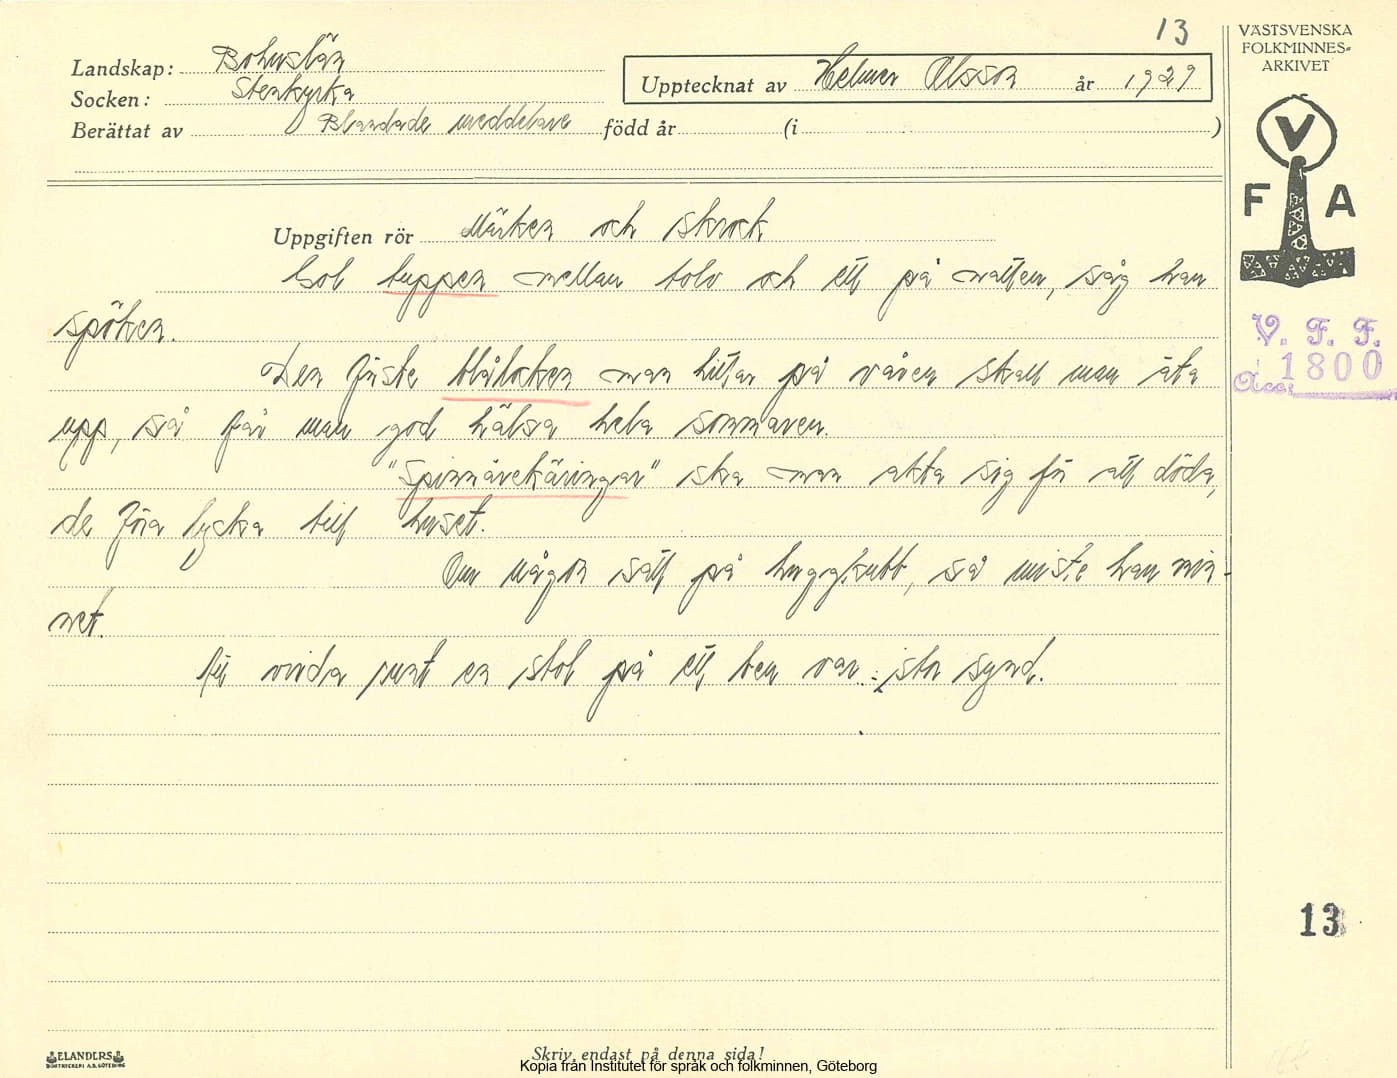 13
VÄSTSVENSKA
FOLKMINNES-
ARKIVET
Landskap: Bohuslän
Socken: Stenkyrka
Upptecknat av Helmer Olsson år 1929
Berättat av Blandade meddelare född år (i )
V
F A
Uppgiften rör Märken och skrock
Gol tuppen mellan tolv och ett på natten, såg han
spöken.
Den första blålocken man hittar på våren skall man äta
upp, så får man god hälsa hela sommaren.
"Spinnarekäringar" ska man akta sig för att döda,
de föra lycka till huset.
Om någon satt på huggkubb, så miste han min-
net.
Att vrida runt en stol på ett ben var stor synd.
V. F. F.
Acc. 1800
13
ELANDERS
BOKTRYCKERI A.B. GÖTEBORG
Skriv endast på denna sida!
Kopia från Institutet för språk och folkminnen, Göteborg